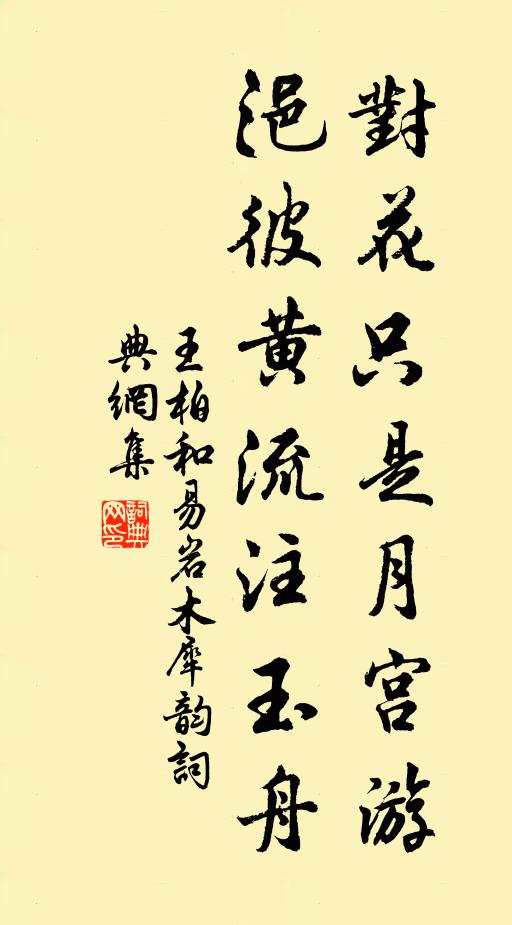 對花只是月宮游
浥彼黄流注玉舟
王柏和易岩木犀韵詞
典網集
詞典網印